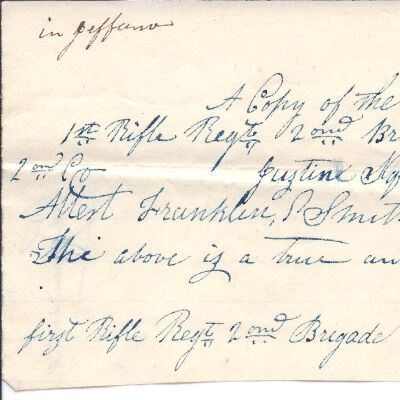 in Jefferson
A Copy of the
1st Rifle Regt, 2ond Br
2ond Co Justine
Albert Franklin, P Smith
The above is a true an
first Rifle Regt 2ond Brigade